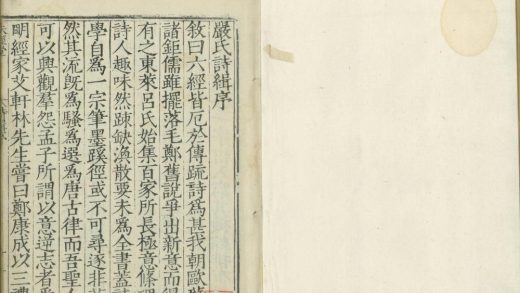 嚴氏詩緝序
敘曰六經皆厄於傳䟽詩爲甚我朝歐蘇
諸鉅儒雖擺落毛鄭舊說爭出新意而得
有之東萊呂氏始集百家所長極意條理
詩人趣味然疎缺渙散要未爲全書蓋詩
學自爲一宗筆墨蹊徑或不可尋逐非
然其流旣爲騷爲選爲唐古律而吾聖
可以興觀羣怨孟子所謂以意逆志者
明經家艾軒林先生嘗曰鄭康成以三禮